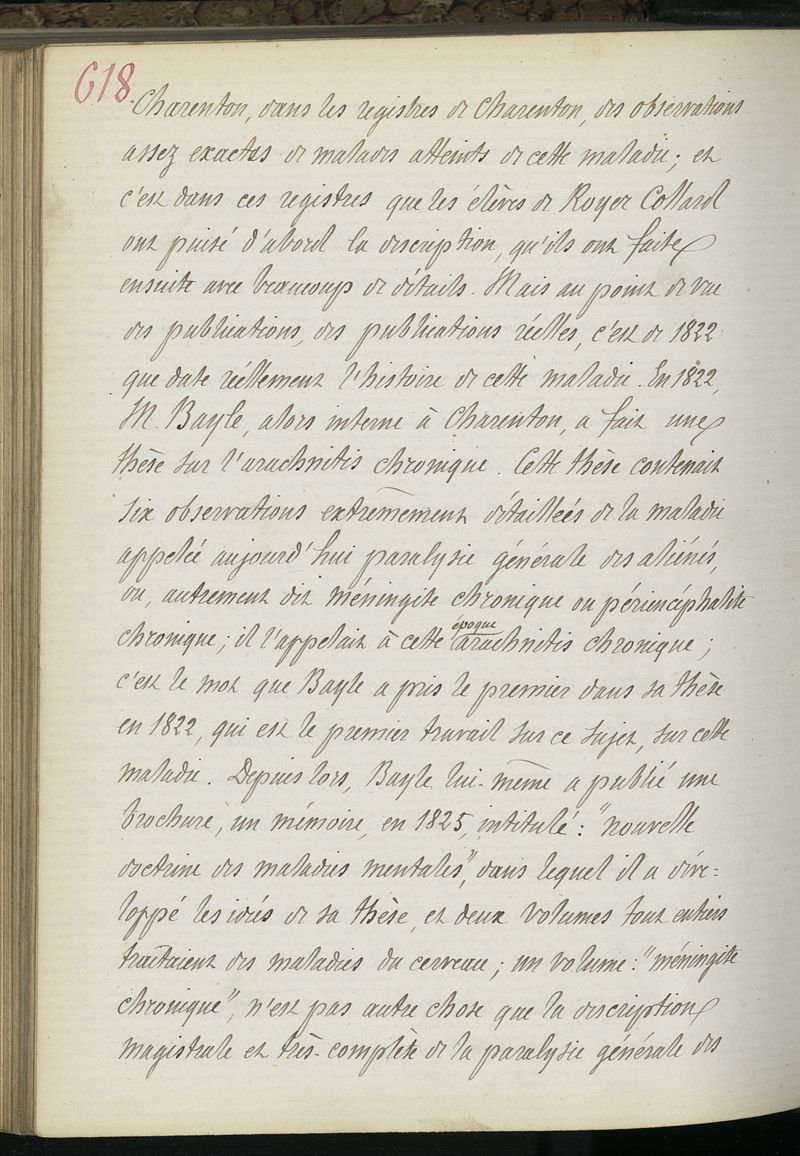 618.
Charenton, dans les registres de Charenton, des observations
assez exactes de malades atteints de cette maladie; et
c'est dans ces registres que les élèves de Royer Collard
ont puisé d'abord la description, qu'ils ont faite
ensuite avec beaucoup de détails. Mais au point de vue
des publications, des publications réelles, c'est de 1822
que date réellement l'histoire de cette maladie. En 1822,
M. Bayle, alors interne à Charenton, a fait une
thèse sur l'arachnitis chronique. Cette thèse contenait
six observations extrêmement détaillées de la maladie
appelée aujourd'hui paralysie générale des aliénés,
ou, autrement dit méningite chronique ou périencéphalite
époque
chronique; il l'appelait à cette arachnitis chronique;
c'est le mot que Bayle a pris le premier dans sa thèse
en 1822, qui est le premier travail sur ce sujet, sur cette
maladie. Depuis lors, Bayle lui-même a publié une
brochure, un mémoire, en 1825, intitulé: "nouvelle
doctrine des maladies mentales", dans lequel il a déve-
loppé les idées de sa thèse, et deux volumes tout entiers
traitaient des maladies du cerveau; un volume: "méningite
chronique", n'est pas autre chose que la description
magistrale et très-complète de la paralysie générale des